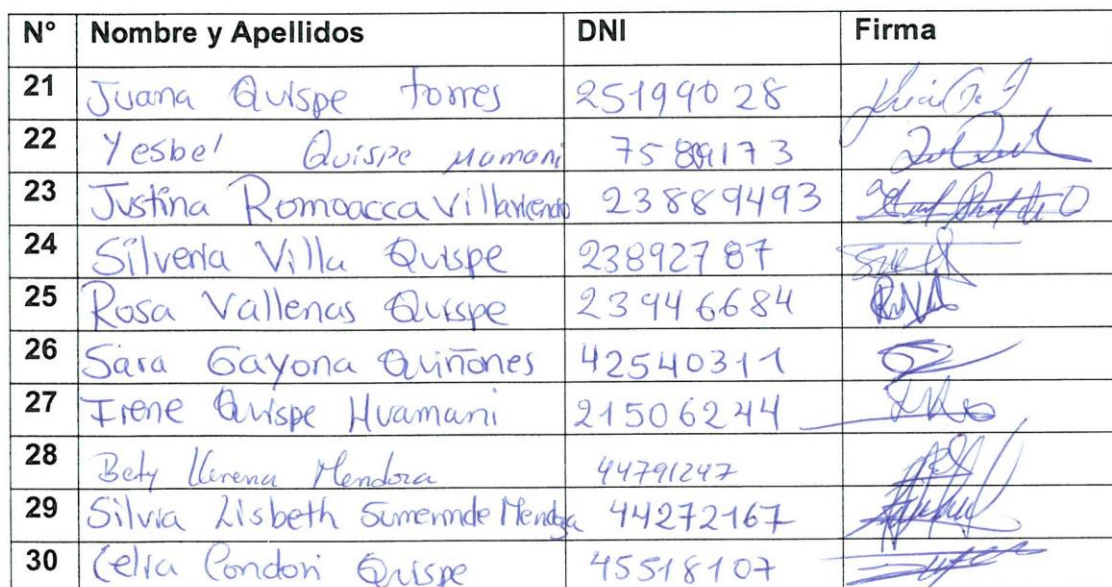 N° Nombre y Apellidos DNI Firma
21 Juana Quispe torres 25199028
22 Yesbel Quispe Mamani
23 Justina Romoacca 23889493
24 Silveria Villa Quispe 23892787
25 Rosa Vallenas Quispe 23946684
26 Sara Gayona Quiñones 42540311
27 Irene Quispe Huamani 21506244
28 Bety Llerena Mendoza 44791247
29 Silvia Lisbeth Mendoza 44272167
30 Celia Condori Quispe 45518107